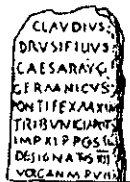 CLAVDIVS
DRVSI FILIVS
CAESAR AVG
GERMANICVS
PONTIFEX MAXIM
TRIBVNICIA POT
IMP XI P P COS
DESIGNATVS